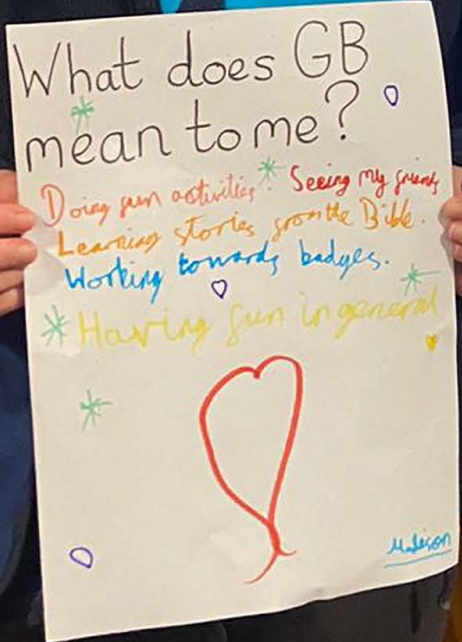 What does GB
mean to me?
Doing fun activities Seeing my friends
Learning stories from the Bible.
Working towards badges.
Having fun in general
Madison